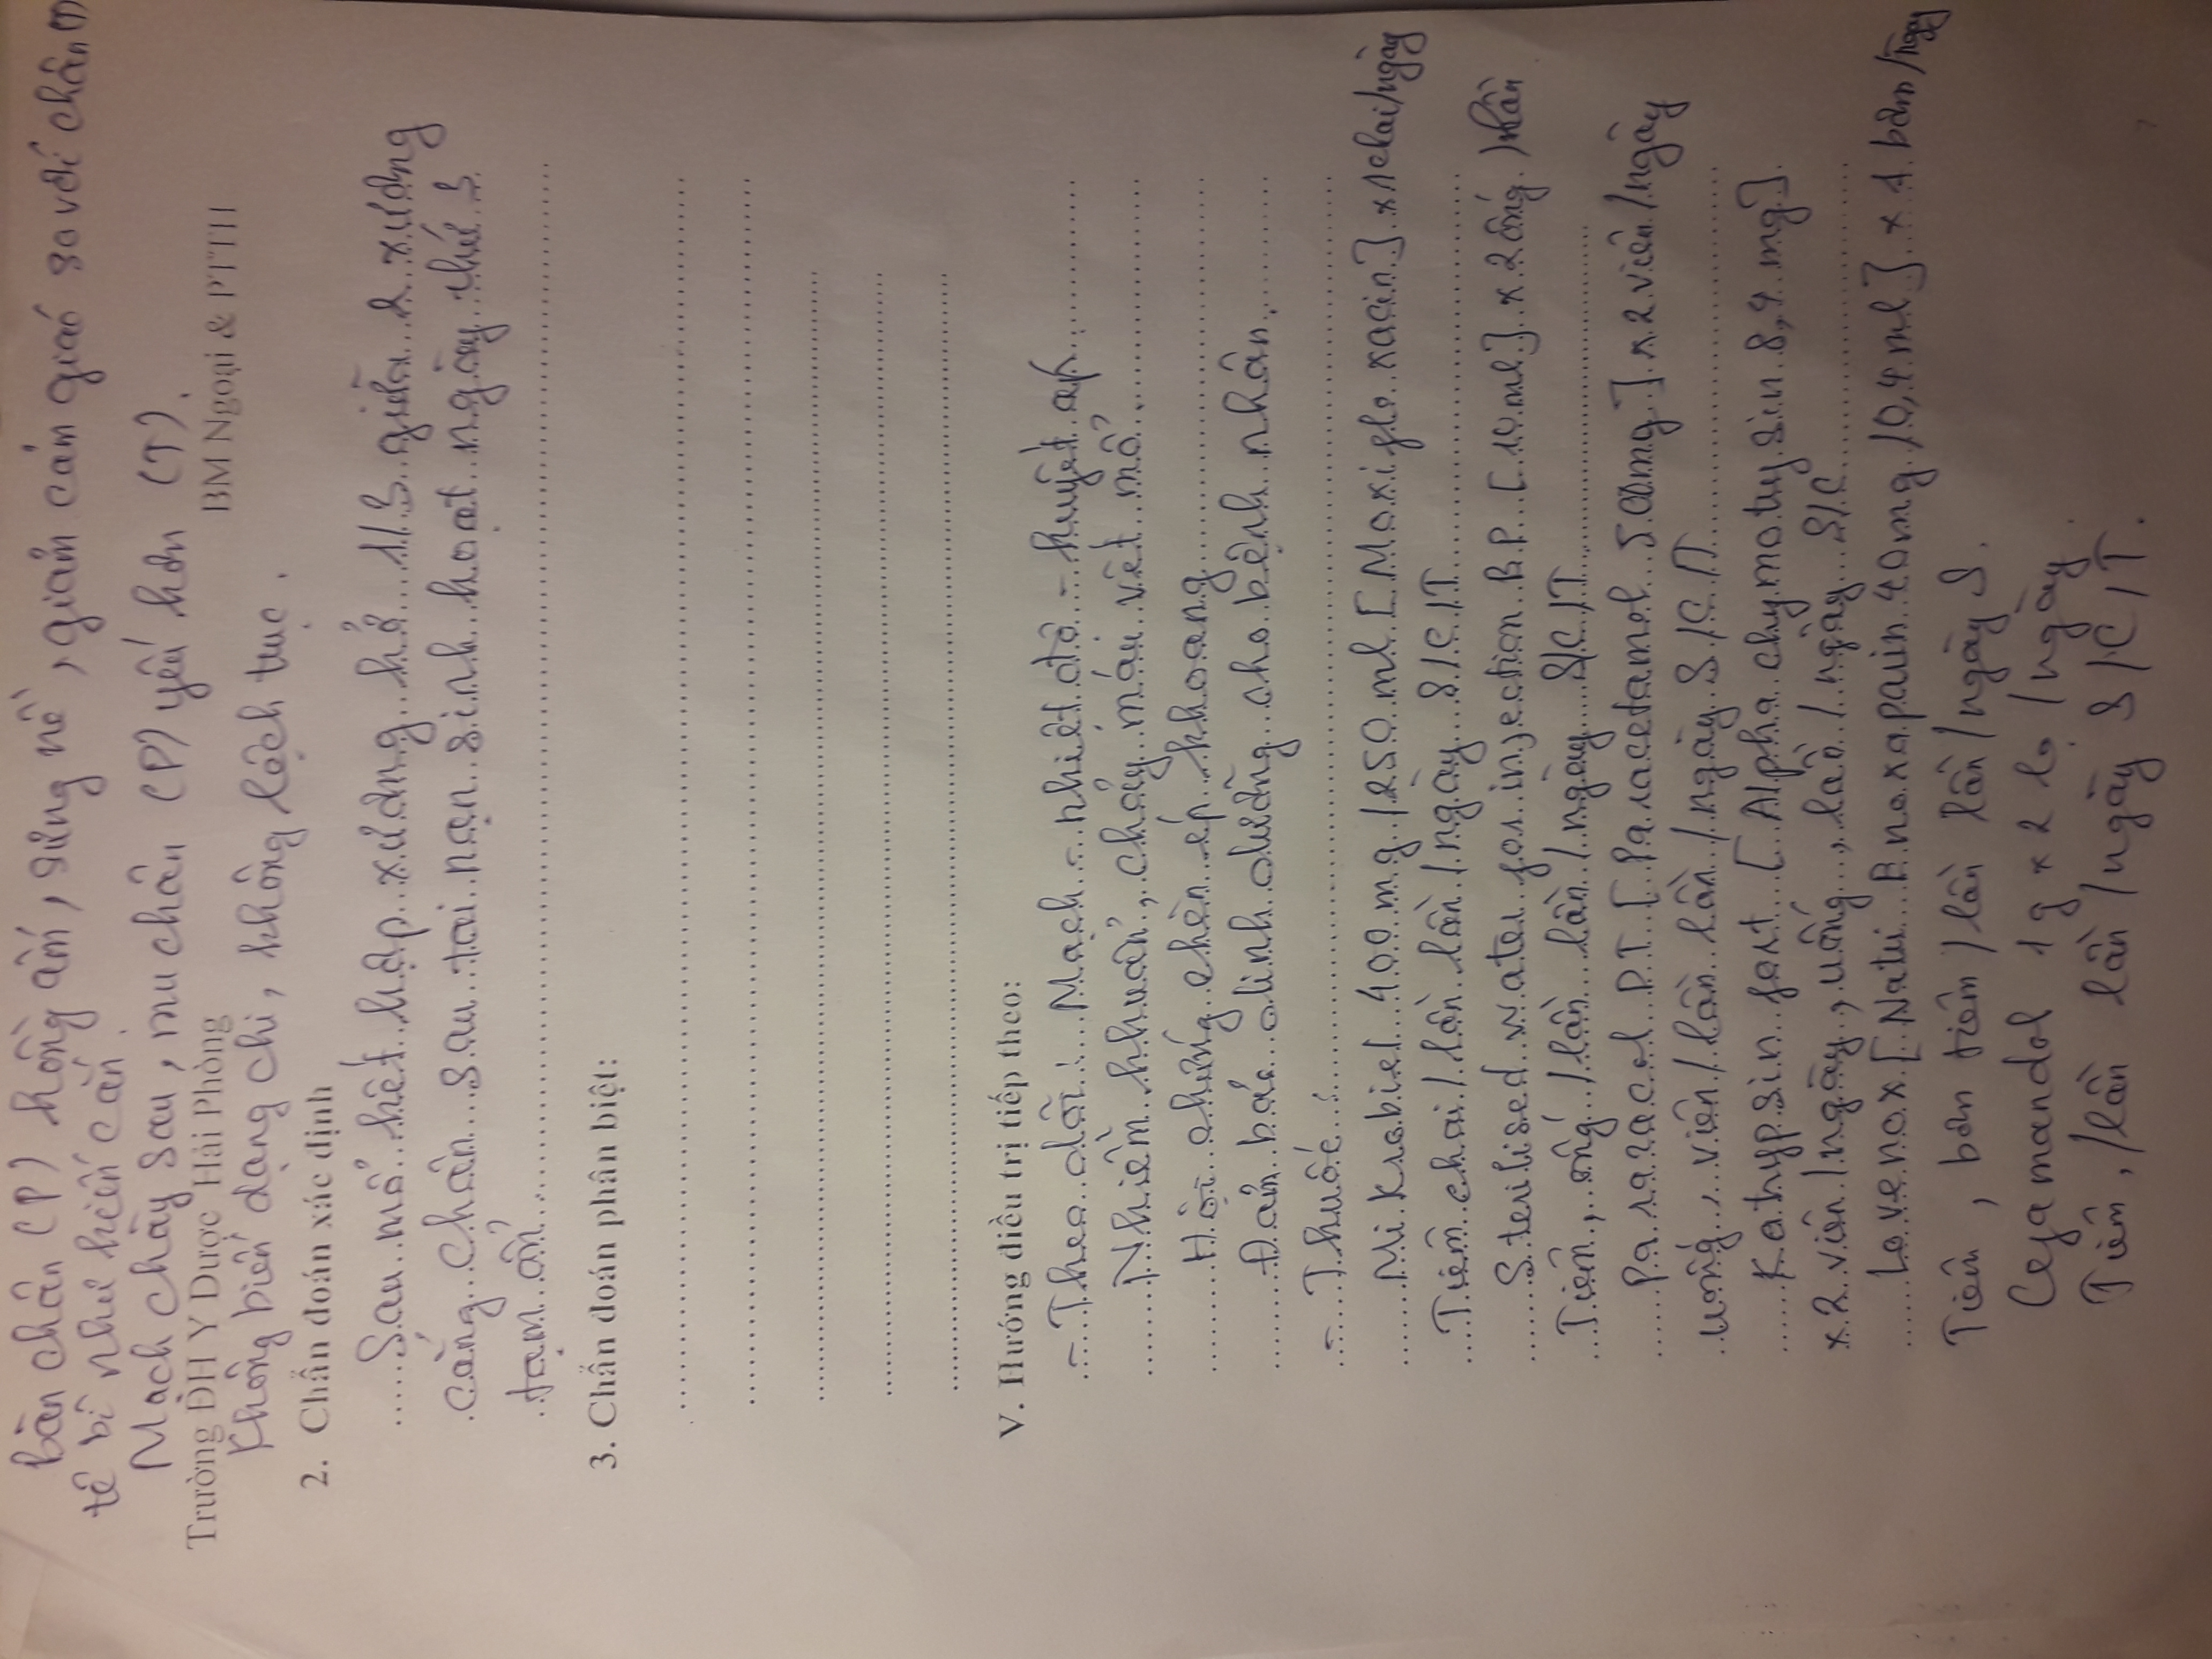 Bàn chân (P) hồng ấm, sưng nề, giảm cảm giác so với chân (T)
tê bì như kiến cắn.
Mạch chày sau, mu chân (P) yếu hơn (T).
Trường ĐH Y Dược Hải Phòng BM Ngoại & PTTH
Không biến dạng chi, không lệch trục.
2. Chẩn đoán xác định
Sau mổ kết hợp xương hở 1/3 giữa 2 xương
cẳng chân sau tai nạn sinh hoạt ngày thứ 3
tạm ổn
3. Chẩn đoán phân biệt:
V. Hướng điều trị tiếp theo:
- Theo dõi: Mạch - nhiệt độ - huyết áp
Nhiễm khuẩn, chảy máu vết mổ.
Hội chứng chèn ép khoang
Đảm bảo dinh dưỡng cho bệnh nhân.
- Thuốc:
Mikrobiel 400mg/250ml [Moxifloxacin] x 1 chai/ngày
Tiêm chai/lần lần/ngày S/C/T
Sterilised water for injection B.P. [10ml] x 2 ống
Tiêm, ống/lần lần/ngày S/C/T
Parazacol DT [Paracetamol 500mg] x 2 viên/ngày
uống, viên/lần lần/ngày S/C/T
Katrypsin fort [Alpha chymotrysin 8,4 mg]
x 2 viên/ngày, uống, lần/ngày S/C
Lovenox [Natri Enoxaparin 40mg/0,4ml] x 1 bơm/ngày
Tiêm, bơm tiêm/lần lần/ngày S.
Cefamandol 1g x 2 lọ/ngày
Tiêm, /lần lần/ngày S/C/T.
7